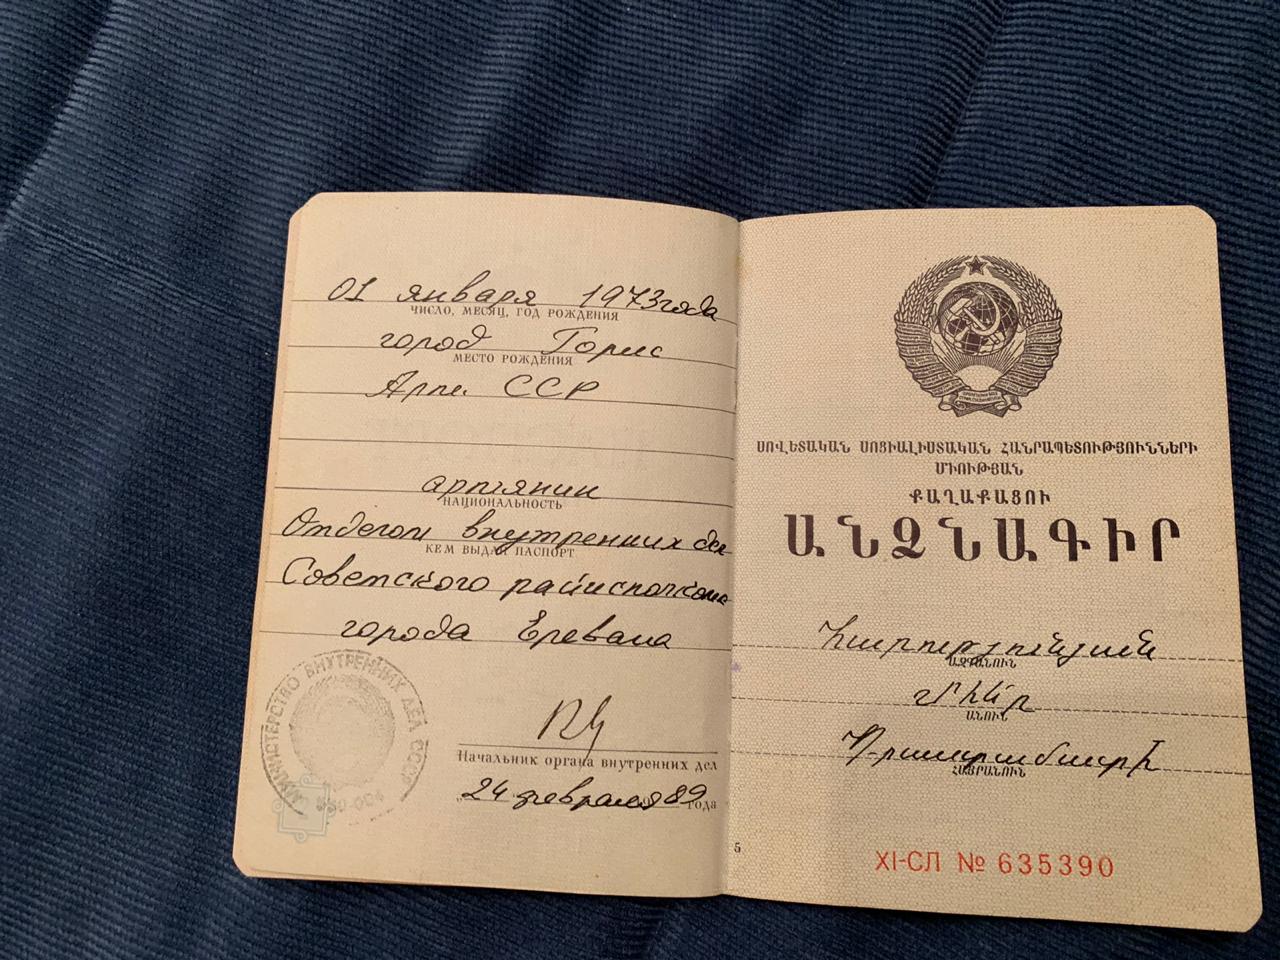 01 января 1973 года
ЧИСЛО, МЕСЯЦ, ГОД РОЖДЕНИЯ
город Горис
МЕСТО РОЖДЕНИЯ
Арм. ССР
армянин
НАЦИОНАЛЬНОСТЬ
Отделом внутренних дел
КЕМ ВЫДАН ПАСПОРТ
Советского райисполкома
города Еревана
МИНИСТЕРСТВО ВНУТРЕННИХ ДЕЛ СССР
Начальник органа внутренних дел
„24 февраля 89 года
ՍՈՎԵՏԱԿԱՆ ՍՈՑԻԱԼԻՍՏԱԿԱՆ ՀԱՆՐԱՊԵՏՈՒԹՅՈՒՆՆԵՐԻ
ՄԻՈՒԹՅԱՆ
ՔԱՂԱՔԱՑՈՒ
ԱՆՁՆԱԳԻՐ
Հարությունյան
ԱԶԳԱՆՈՒՆ
ԱՆՈՒՆ
ՀԱՅՐԱՆՈՒՆ
5
XI-СЛ № 635390